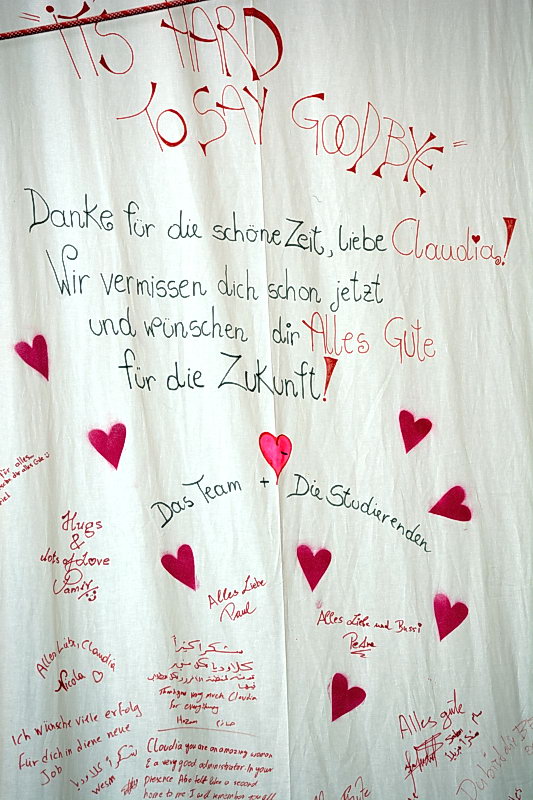 "IT'S HARD
TO SAY GOODBYE"
Danke für die schöne Zeit, liebe Claudia!
Wir vermissen dich schon jetzt
und wünschen dir Alles Gute
für die Zukunft!
Das Team + Die Studierenden
für alles
Hugs
&
lots of Love
Alles Liebe
Paul
Alles Liebe und Bussi
Petra
Alles Liebe, Claudia
Nicola
شكرا كثيرا
Thank you very much Claudia
for everything
Hazem حازم
Ich wünsche viele erfolg
Für dich in diene neue
Job
شكرا كلاوديا
wesm
Claudia you are an amazing woman
& a very good administrator. In your
presence Abo felt like a second
home to me I will remember you all
Alles gute
Gute